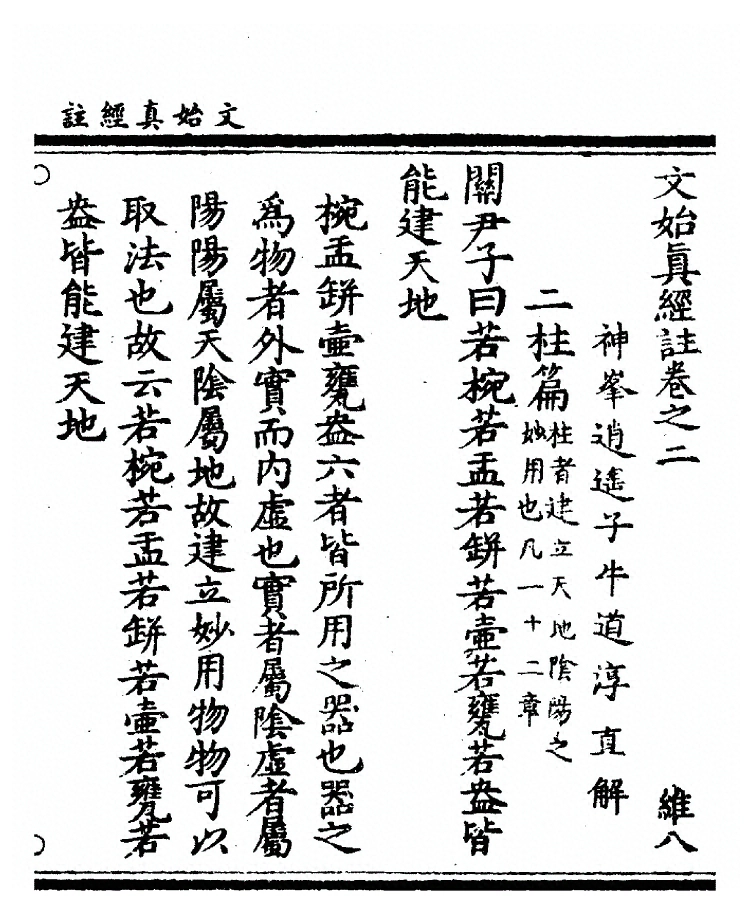 文始真經註
文始眞經註卷之二 維八
神峯逍遙子牛道淳直解
二柱篇 柱者建立天地陰陽之
妙用也凡一十二章
關尹子曰若椀若盂若缾若壷若甕若盎皆
能建天地
椀盂缾壷甕盎六者皆所用之器也器之
爲物者外實而内虛也實者屬陰虛者屬
陽陽屬天陰屬地故建立妙用物物可以
取法也故云若椀若盂若缾若壷若甕若
盎皆能建天地